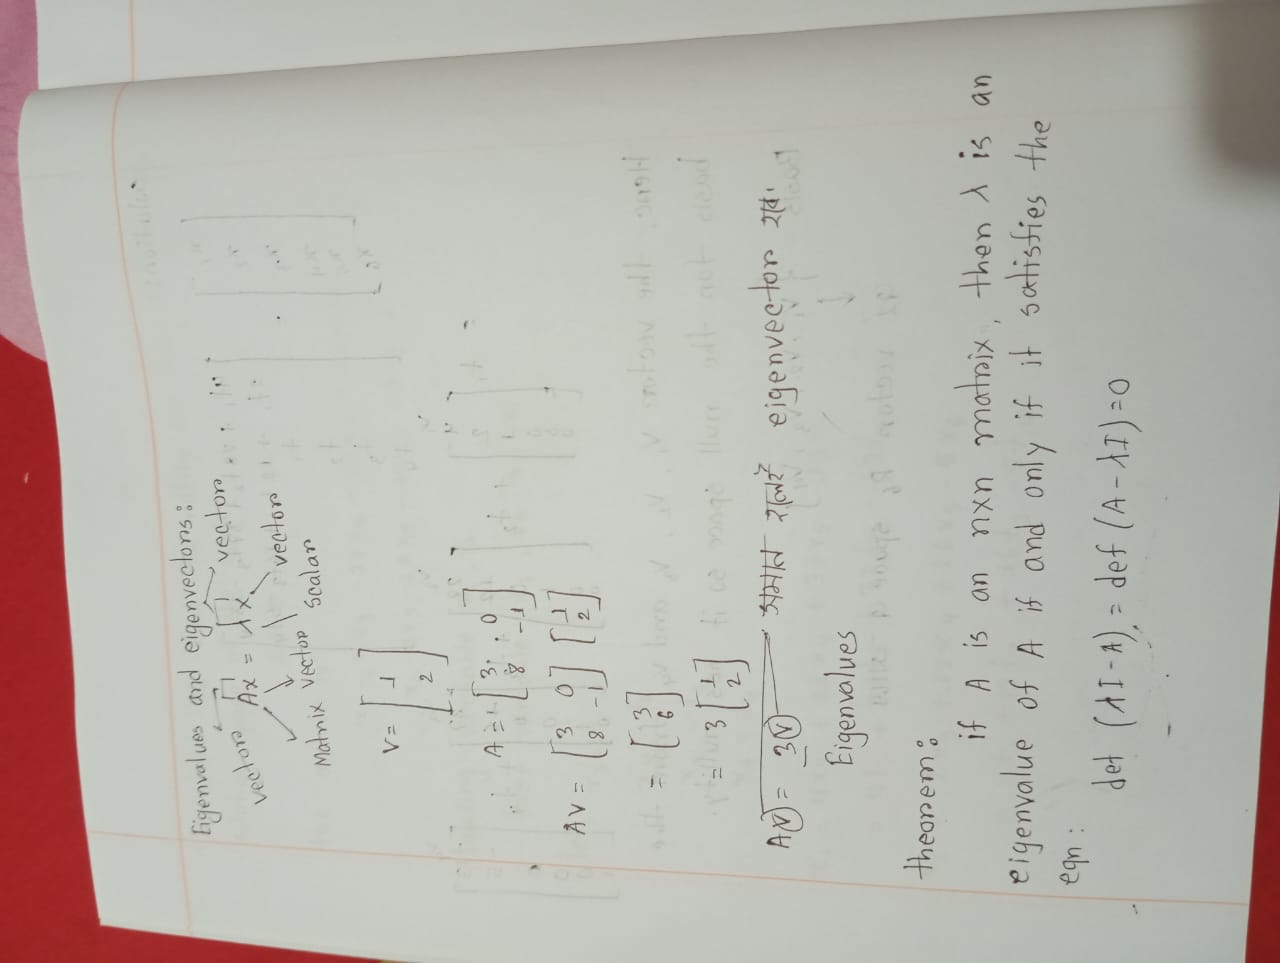 Eigenvalues and eigenvectors:
vectors Ax = λx → vectors
Matrix vector scalar vectors
V = [1 2]
A = [3 0 8 -1]
AV = [3 0 8 -1] [1 2]
= [3 6]
= 3 [1 2]
AV = 3V সমান হলেই eigenvector হবে।
Eigenvalues
theorem:
if A is an nxn matrix, then λ is an
eigenvalue of A if and only if it satisfies the
eqn:
det (λI-A) = def (A-λI)=0